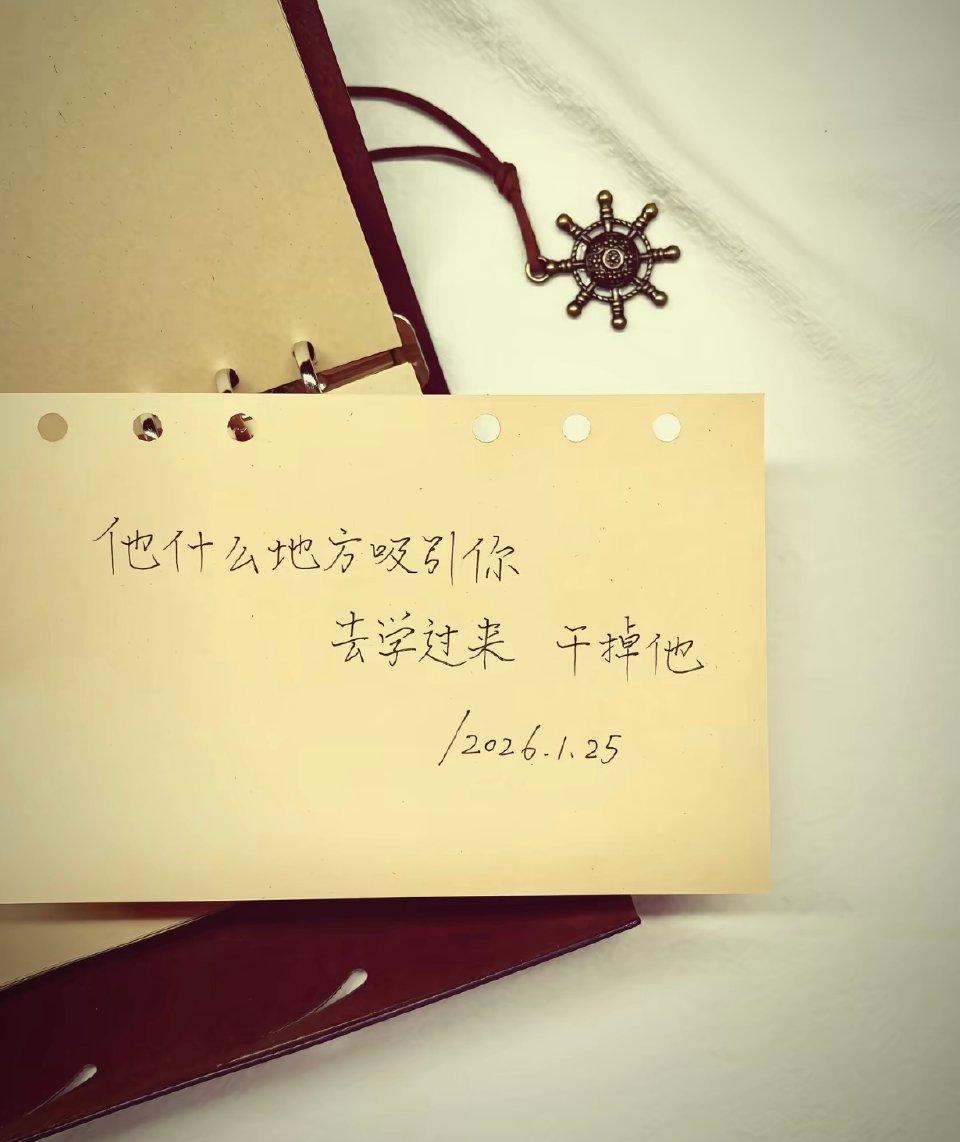 他什么地方吸引你
去学过来 干掉他
/2026.1.25